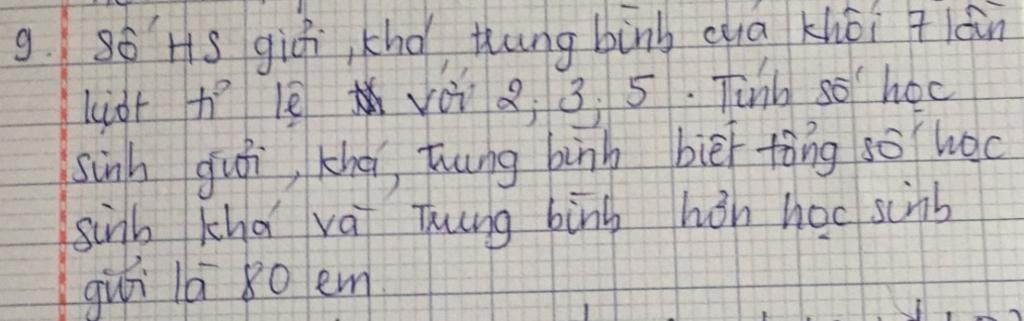 9. Số HS giỏi, khá, trung bình của khối 7 lần
lượt tỉ lệ với 2; 3; 5. Tính số học
sinh giỏi, khá, trung bình biết tổng số học
sinh khá và Trung bình hơn học sinh
giỏi là 80 em.